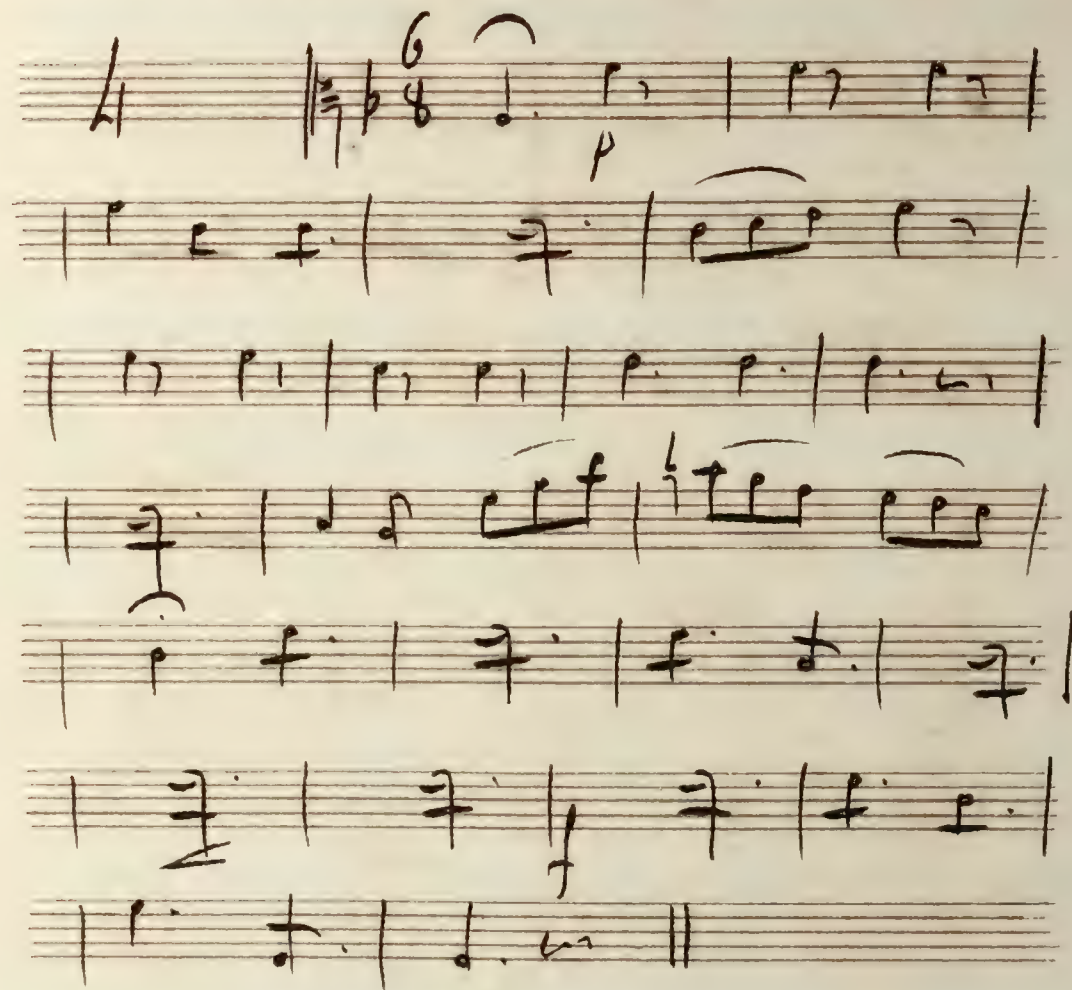 4 6
8
p
f